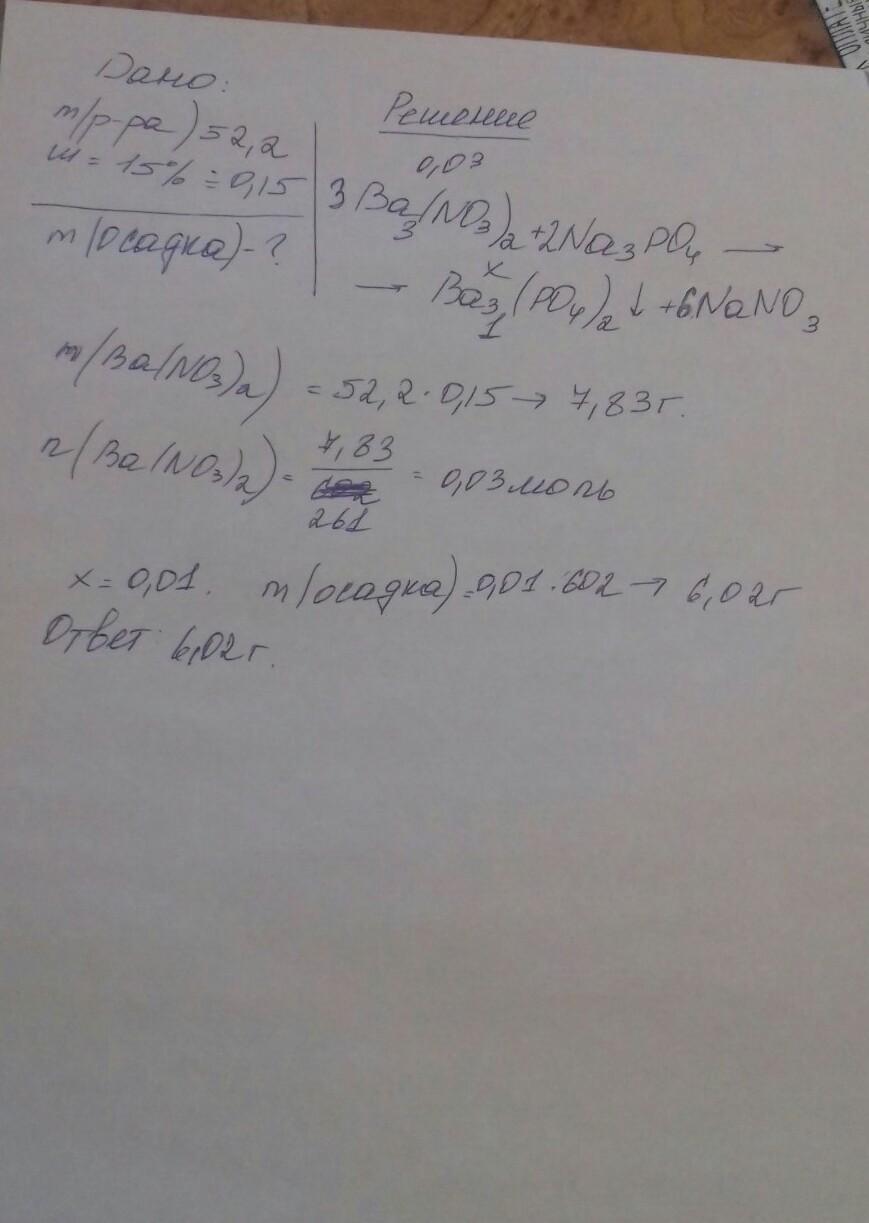 Дано:
m(р-ра) 52,2
ω = 15% = 0,15
m(осадка) - ?
Решение
0,03
3Ba(NO₃)₂ + 2Na₃PO₄ →
3
x
→ Ba₃(PO₄)₂↓ + 6NaNO₃
1
m(Ba(NO₃)₂) = 52,2 · 0,15 → 7,83г.
n(Ba(NO₃)₂) = 7,83 / 261 = 0,03 моль
x = 0,01. m(осадка) = 0,01 · 602 → 6,02г
Ответ: 6,02г.